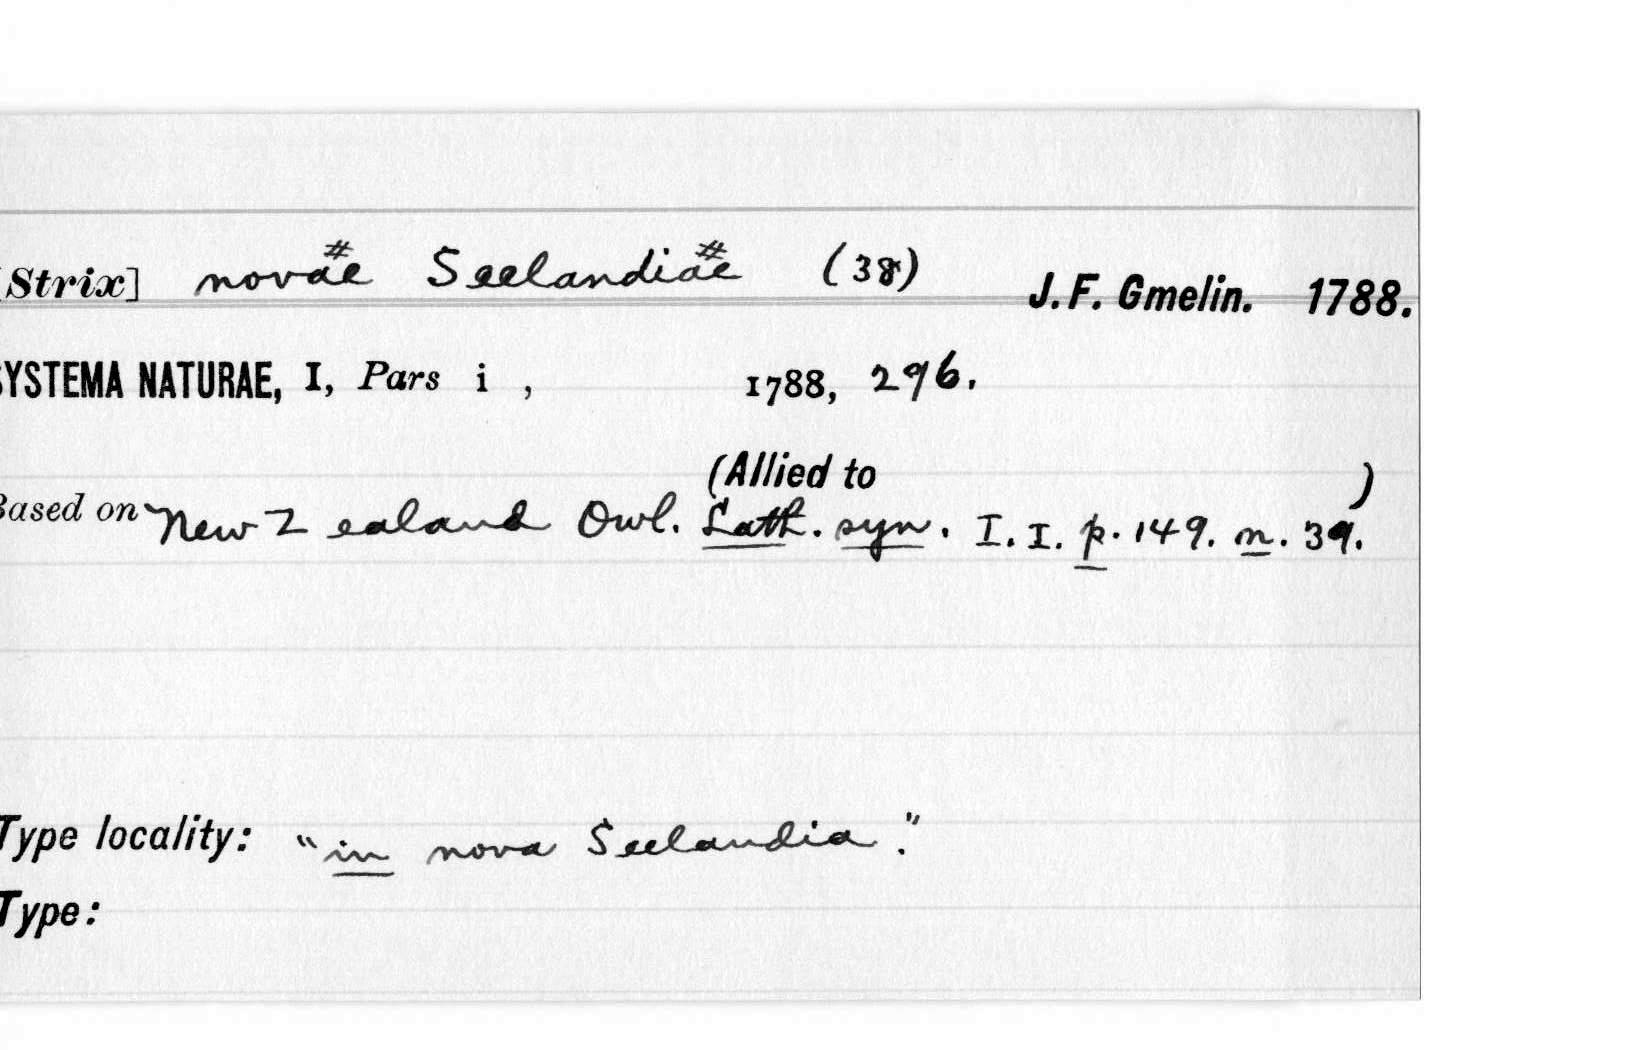 [Strix] novae Seelandiae (38) J. F. Gmelin. 1788.
# #
SYSTEMA NATURAE, I, Pars i , 1788, 296.
(Allied to )
Based on New Zealand Owl. Lath. syn. I. I. p. 149. n. 39.
Type locality: "in nova Seelandia."
Type: